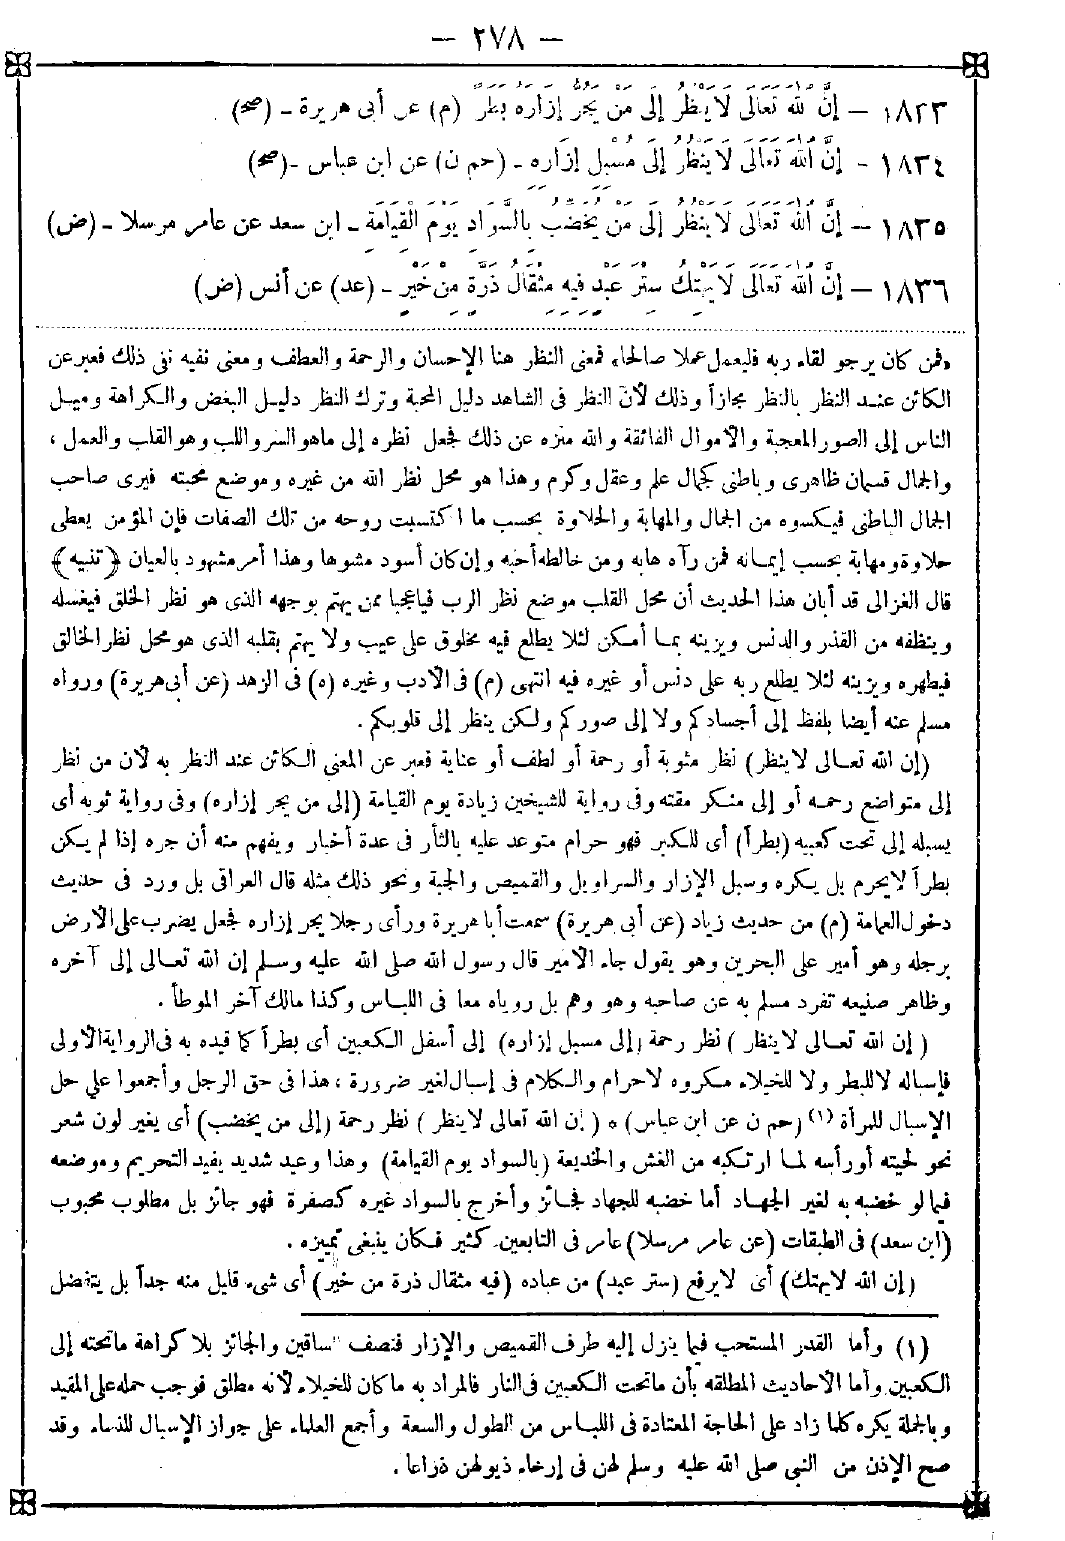 — ٢٧٨ —
١٨٣٣ — إِنَّ اللهَ تَعَالَى لَا يَنْظُرُ إِلَى مَنْ يَجُرُّ إِزَارَهُ بَطَرًا (م) عن أبى هريرة ـ (صح)
١٨٣٤ - إِنَّ اللهَ تَعَالَى لَا يَنْظُرُ إِلَى مُسْبِلِ إِزَارَهُ ـ (حم ن) عن ابن عباس ـ (صح)
١٨٣٥ — إِنَّ اللهَ تَعَالَى لَا يَنْظُرُ إِلَى مَنْ يُخَضِّبُ بِالسَّوَادِ يَوْمَ الْقِيَامَةِ ـ ابن سعد عن عامر مرسلا ـ (ض)
١٨٣٦ — إِنَّ اللهَ تَعَالَى لَا يَهْتِكُ سِتْرَ عَبْدٍ فِيهِ مِثْقَالُ ذَرَّةٍ مِنْ خَيْرٍ ـ (عد) عن أنس (ض)
«فمن كان يرجو لقاء ربه فليعمل عملا صالحا» فمعنى النظر هنا الإحسان والرحمة والعطف ومعنى نفيه نفى ذلك فعبر عن
الكائن عند النظر بالنظر مجازاً وذلك لأن النظر فى الشاهد دليل المحبة وترك النظر دليل البغض والكراهة وميل
الناس إلى الصور المعجبة والأموال الفائقة والله منزه عن ذلك فجعل نظره إلى ماهو السر واللب وهو القلب والعمل ،
والجمال قسمان ظاهرى وباطنى كجمال علم وعقل وكرم وهذا هو محل نظر الله من غيره وموضع محبته فيرى صاحب
الجمال الباطنى فيكسوه من الجمال والمهابة والحلاوة بحسب ما اكتسبت روحه من تلك الصفات فإن المؤمن يعطى
حلاوة ومهابة بحسب إيمانه فمن رآه هابه ومن خالطه أحبه وإن كان أسود مشوها وهذا أمر مشهود بالعيان ﴿ تنبيه ﴾
قال الغزالى قد أبان هذا الحديث أن محل القلب موضع نظر الرب فياعجبا ممن يهتم بوجهه الذى هو نظر الخلق فيغسله
وينظفه من القذر والدنس ويزينه بما أمكن لئلا يطلع فيه مخلوق على عيب ولا يهتم بقلبه الذى هو محل نظر الخالق
فيطهره ويزينه لئلا يطلع ربه على دنس أو غيره فيه انتهى (م) فى الأدب وغيره (ه) فى الزهد (عن أبى هريرة) ورواه
مسلم عنه أيضا بلفظ إلى أجسادكم ولا إلى صوركم ولكن ينظر إلى قلوبكم .
(إن الله تعالى لا ينظر) نظر مثوبة أو رحمة أو لطف أو عناية فعبر عن المعنى الكائن عند النظر به لأن من نظر
إلى متواضع رحمه أو إلى منكر مقته وفى رواية للشيخين زيادة يوم القيامة (إلى من يجر إزاره) وفى رواية ثوبه أى
يسبله إلى تحت كعبيه (بطراً) أى للكبر فهو حرام متوعد عليه بالنار فى عدة أخبار ويفهم منه أن جره إذا لم يكن
بطراً لا يحرم بل يكره وسبل الإزار والسراويل والقميص والجبة ونحو ذلك مثله قال العراقى بل ورد فى حديث
دخول العمامة (م) من حديث زياد (عن أبى هريرة) سمعت أبا هريرة ورأى رجلا يجر إزاره فجعل يضرب على الأرض
برجله وهو أمير على البحرين وهو يقول جاء الأمير قال رسول الله صلى الله عليه وسلم إن الله تعالى إلى آخره
وظاهر صنيعه تفرد مسلم به عن صاحبه وهو وهم بل روياه معا فى اللباس وكذا مالك آخر الموطأ .
( إن الله تعالى لا ينظر ) نظر رحمة (إلى مسبل إزاره) إلى أسفل الكعبين أى بطراً كما قيده به فى الرواية الأولى
فإسباله لا للبطر ولا للخيلاء مكروه لا حرام والكلام فى إسبال لغير ضرورة ، هذا فى حق الرجل وأجمعوا على حل
الإسبال للمرأة (١) (حم ن عن ابن عباس) * ( إن الله تعالى لا ينظر ) نظر رحمة (إلى من يخضب) أى يغير لون شعر
نحو لحيته أو رأسه لما ارتكبه من الغش والخديعة (بالسواد يوم القيامة) وهذا وعيد شديد يفيد التحريم وموضعه
فيما لو خضبه به لغير الجهاد أما خضبه للجهاد فجائز وأخرج بالسواد غيره كصفرة فهو جائز بل مطلوب محبوب
(ابن سعد) فى الطبقات (عن عامر مرسلا) عامر فى التابعين كثير فكان ينبغى تمييزه .
(إن الله لا يهتك) أى لا يرفع (ستر عبد) من عباده (فيه مثقال ذرة من خير) أى شىء قليل منه جداً بل يتفضل
(١) وأما القدر المستحب فيما ينزل إليه طرف القميص والإزار فنصف الساقين والجائز بلا كراهة ماتحته إلى
الكعبين وأما الأحاديث المطلقه بأن ماتحت الكعبين فى النار فالمراد به ما كان للخيلاء لأنه مطلق فوجب حمله على المقيد
وبالجملة يكره كلما زاد على الحاجة المعتادة فى اللباس من الطول والسعة وأجمع العلماء على جواز الإسبال للنساء وقد
صح الإذن من النبى صلى الله عليه وسلم لهن فى إرخاء ذيولهن ذراعا .